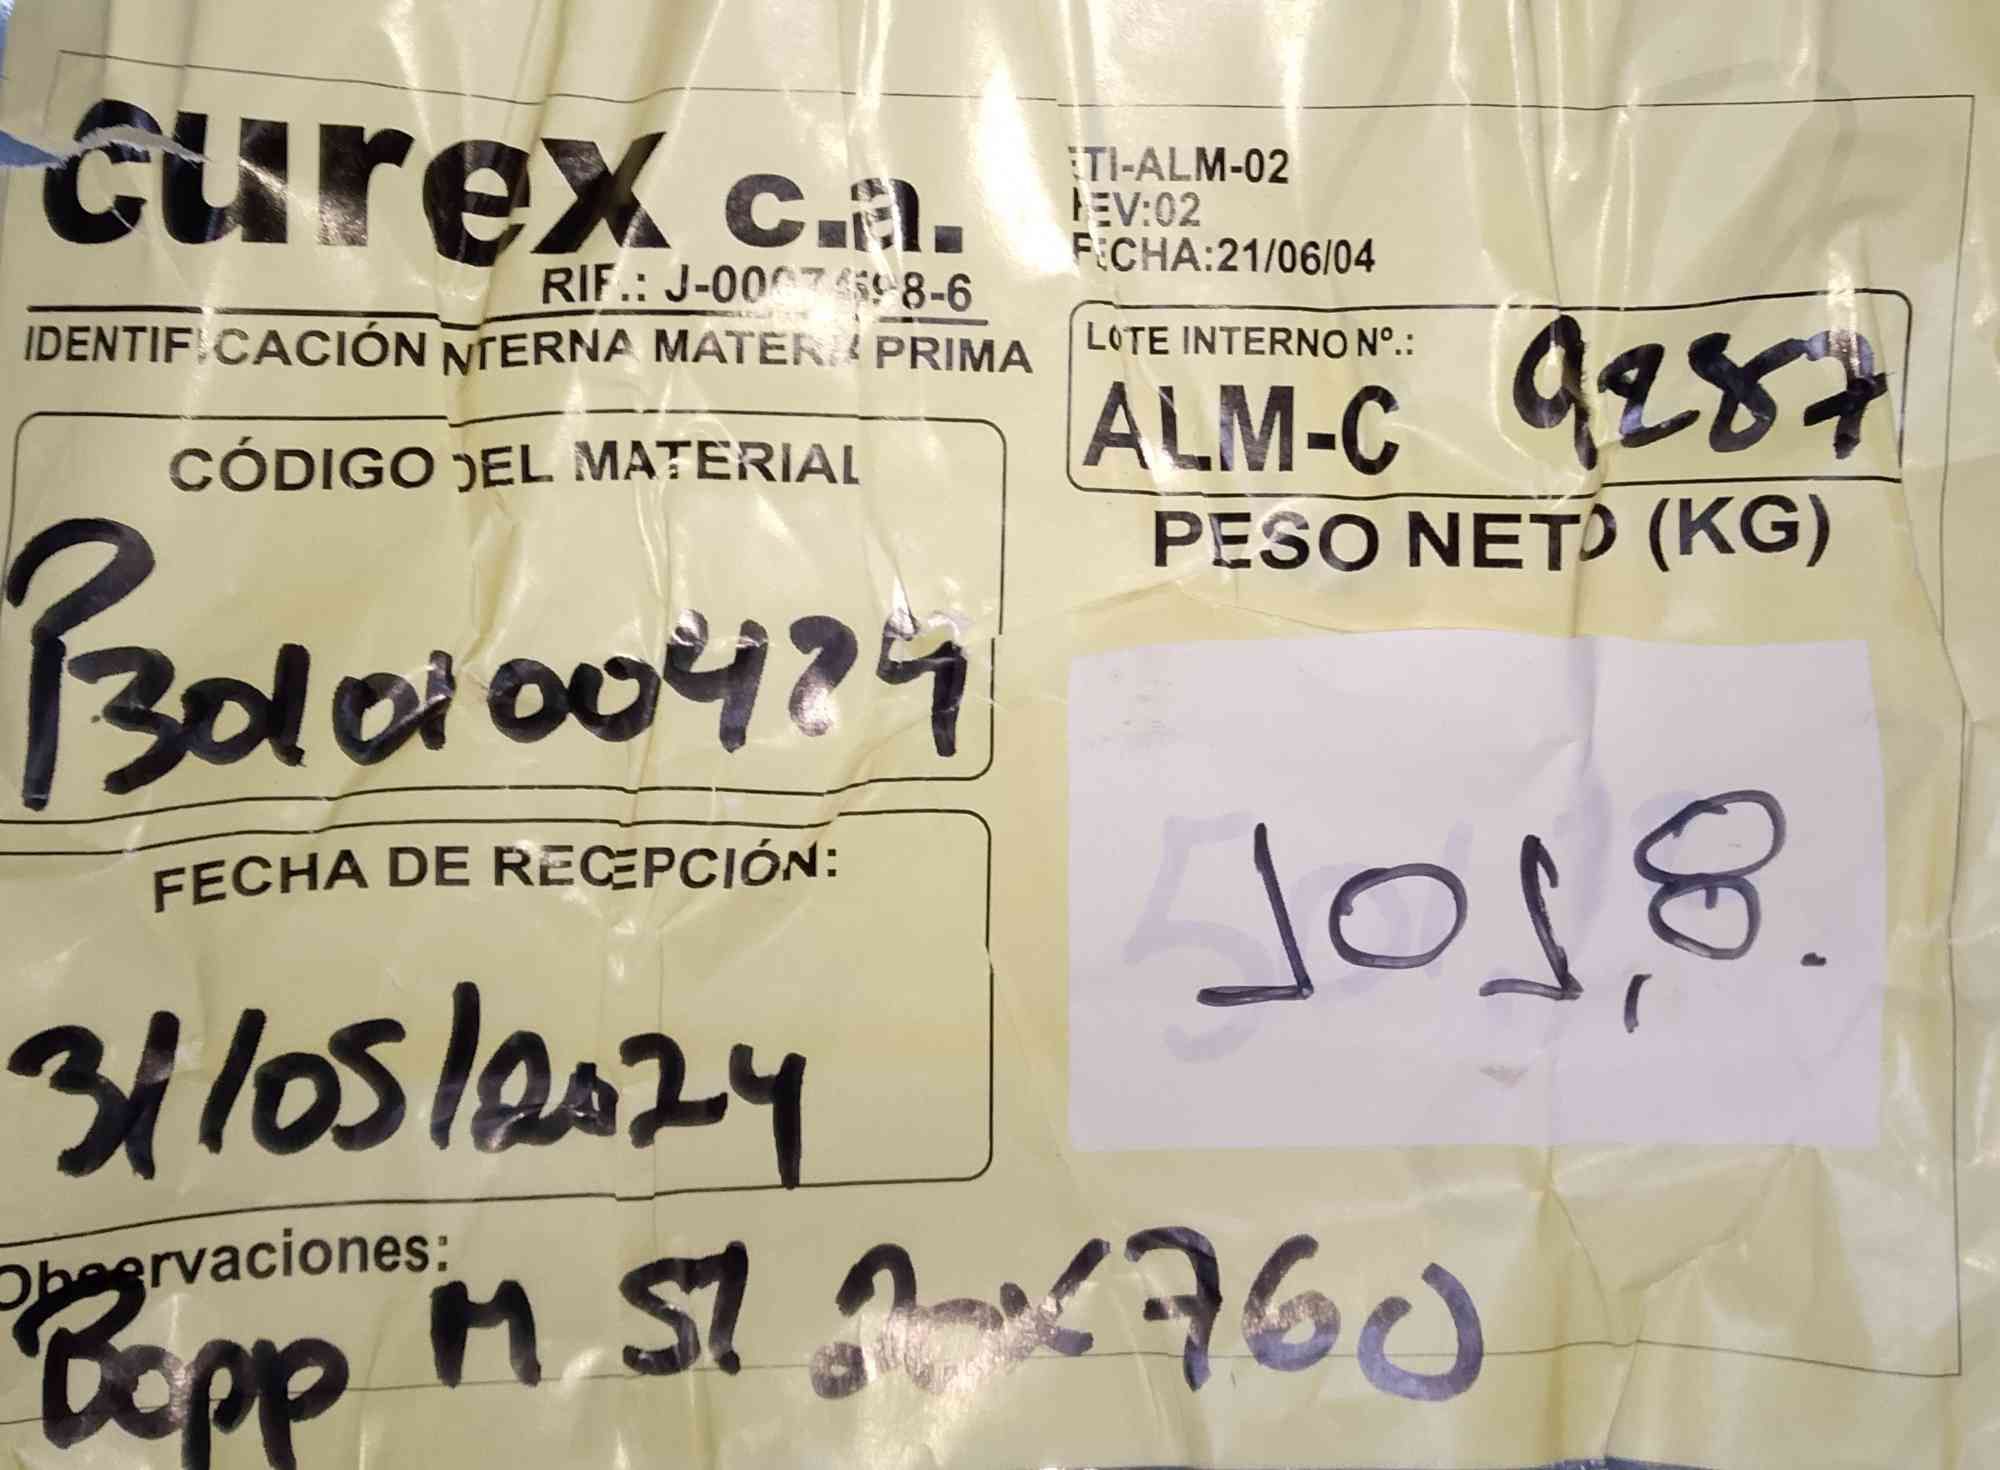 curex c.a.
ETI-ALM-02
REV:02
FECHA:21/06/04
RIF.:
IDENTIFICACIÓN INTERNA MATERIA PRIMA
LOTE INTERNO Nº.:
ALM-C 9287
CÓDIGO DEL MATERIAL
PESO NETO (KG)
101,8.
FECHA DE RECEPCIÓN:
31/05/2024
Observaciones:
Bopp M ST 20x760